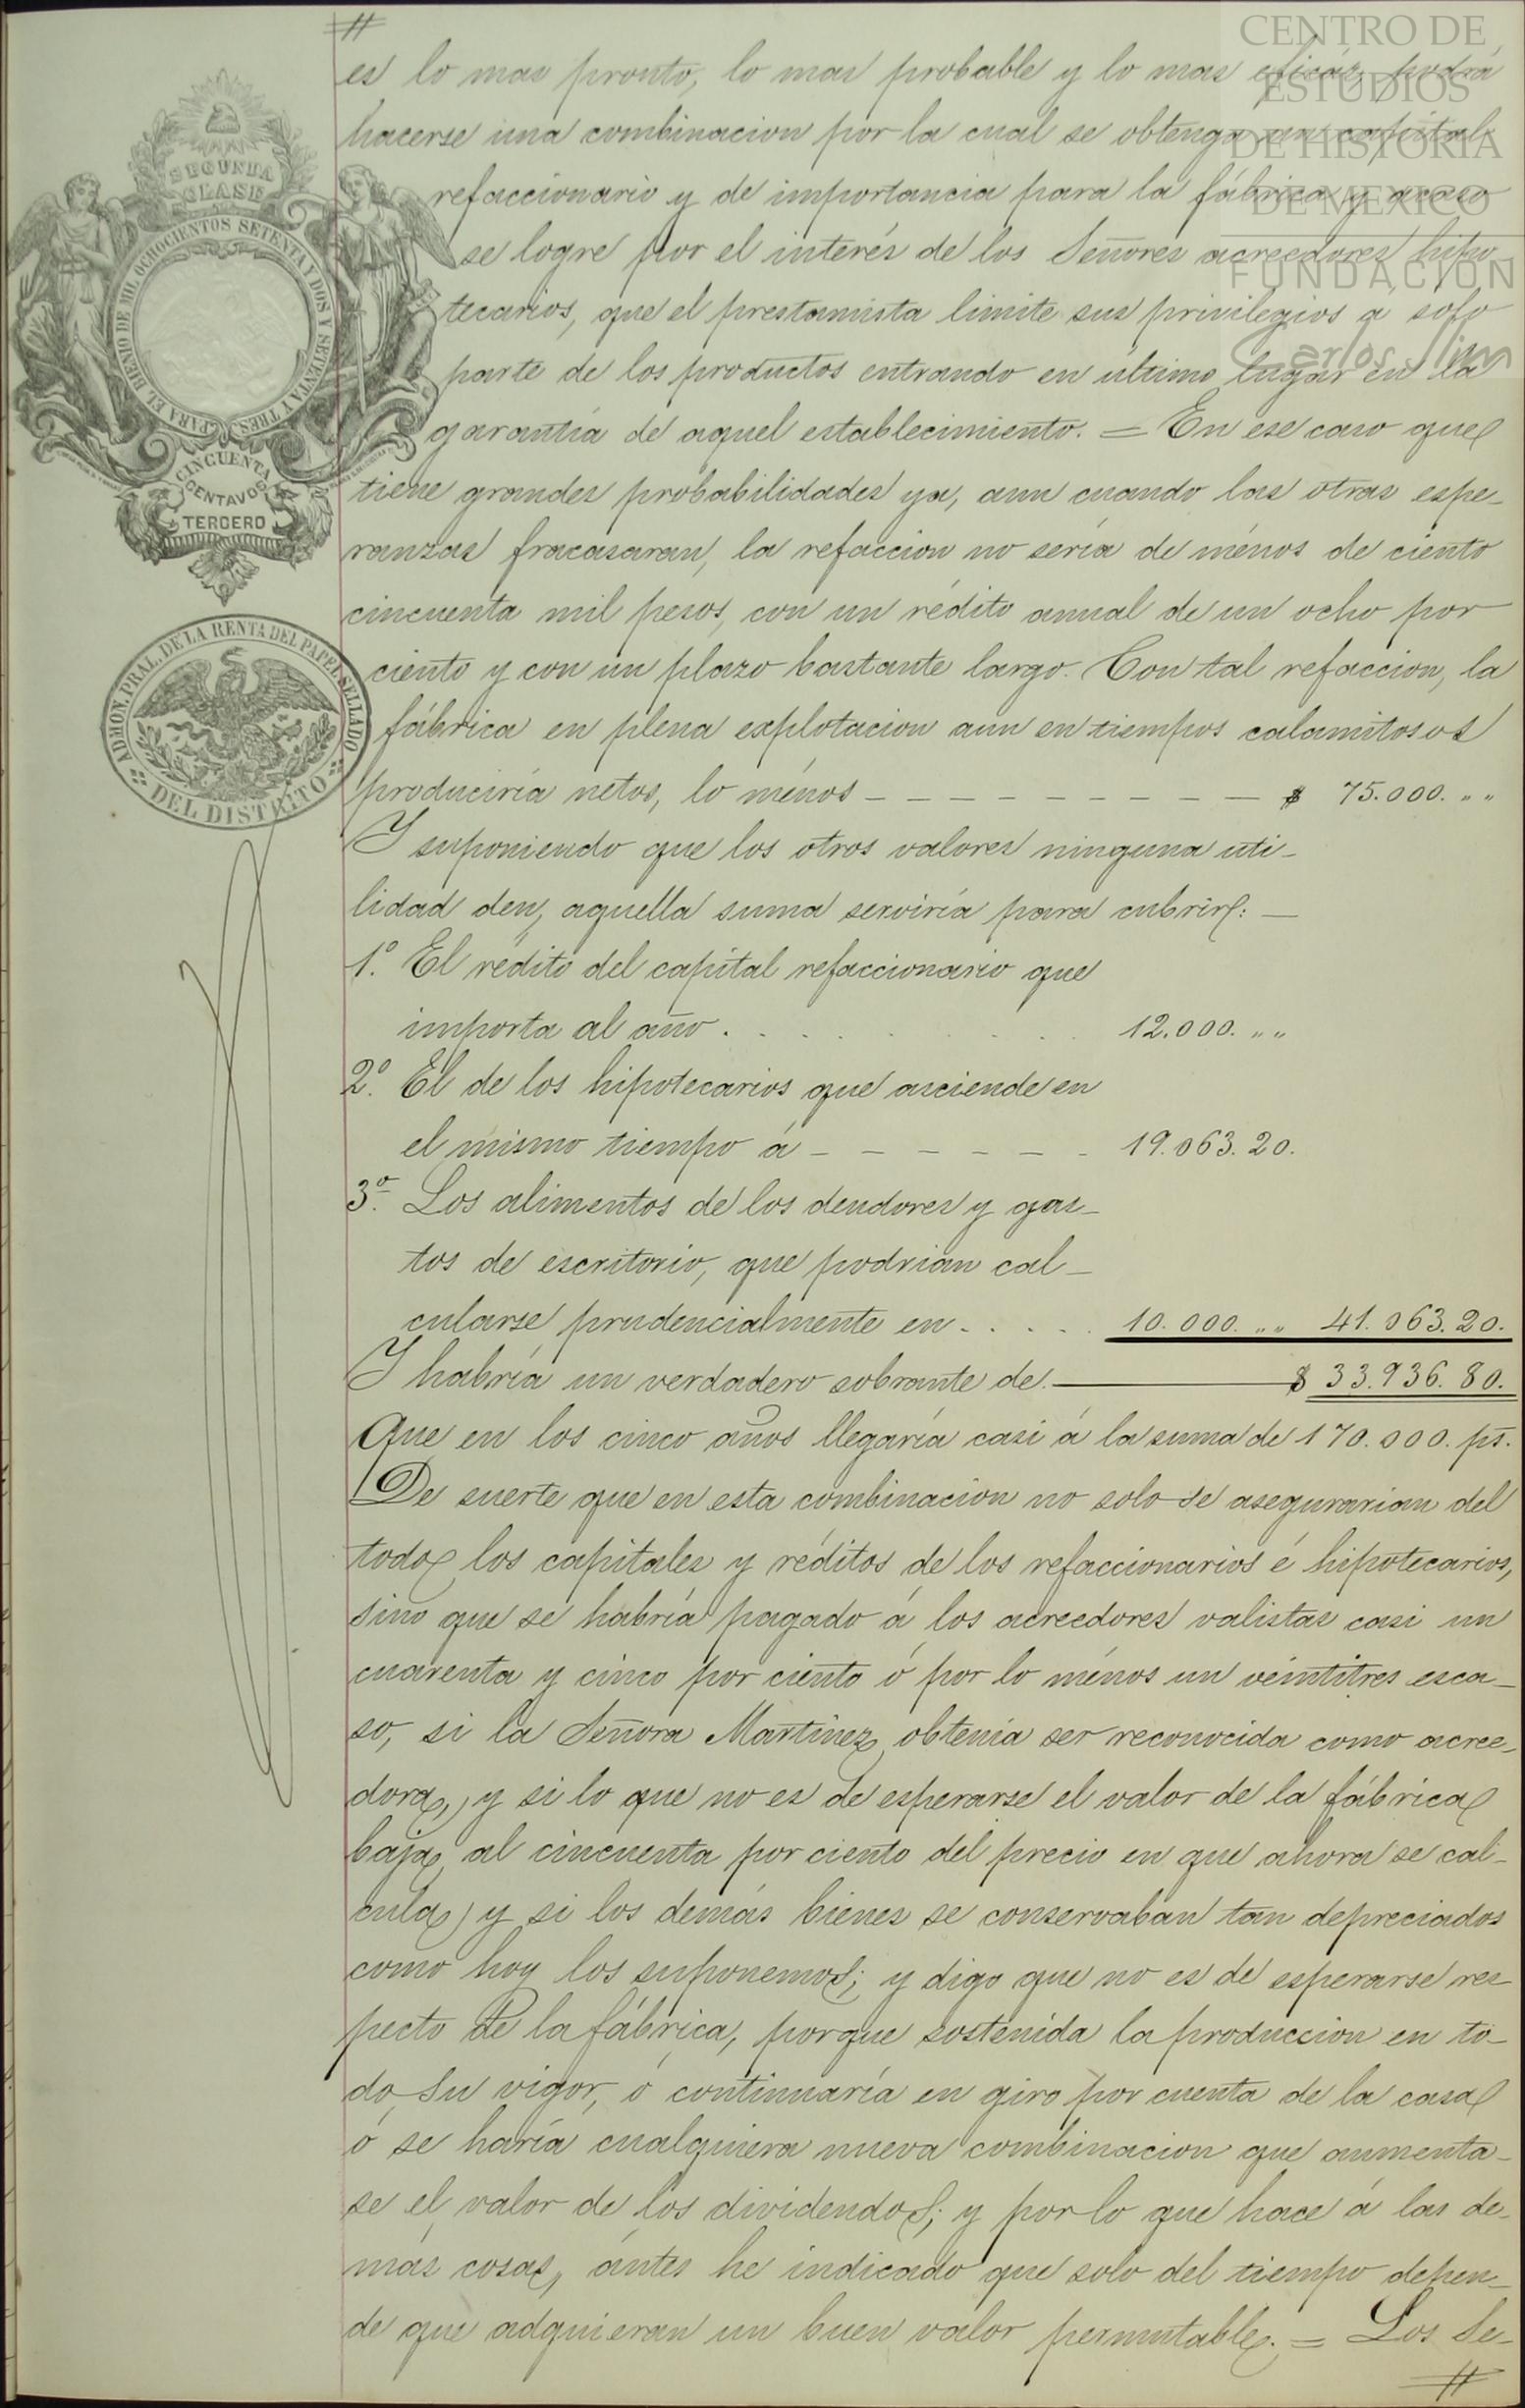 CENTRO DE
ESTUDIOS
DE HISTORIA
DE MEXICO
FUNDACION
Carlos Slim
SEGUNDA
CLASE
PARA EL BIENIO DE MIL OCHOCIENTOS SETENTA Y DOS Y SETENTA Y TRES.
CINCUENTA
CENTAVOS
TERCERO
ADMON. PRAL. DE LA RENTA DEL PAPEL SELLADO
DEL DISTRITO
#
es lo mas pronto, lo mas probable y lo mas eficáz, podrá
hacerse una combinacion por la cual se obtenga un capital
refaccionario y de importancia para la fábrica y acaso
se logre por el interés de los Señores acreedores hipo
tecarios, que el prestamista limite sus privilegios á solo
parte de los productos entrando en último lugar en la
garantía de aquel establecimiento. = En ese caso que
tiene grandes probabilidades ya, aun cuando las otras espe-
ranzas fracasaran, la refaccion no sería de ménos de ciento
cincuenta mil pesos, con un rédito anual de un ocho por
ciento y con un plazo bastante largo. Con tal refaccion, la
fábrica en plena explotacion aun en tiempos calamitosos
produciría netos, lo ménos - - - - - - - - - $ 75.000. " "
Y suponiendo que los otros valores ninguna uti-
lidad den, aquella suma serviría para cubrir: —
1.º El rédito del capital refaccionario que
importa al año . . . . . . . 12.000. " "
2.º El de los hipotecarios que asciende en
el mismo tiempo á - - - - - - 19.063.20.
3.º Los alimentos de los deudores y gas-
tos de escritorio, que podrian cal-
cularse prudencialmente en . . . . . 10.000. " " 41.063.20.
Y habría un verdadero sobrante de. — $ 33.936.80.
Que en los cinco años llegaría casi á la suma de 170.000. ps.
De suerte que en esta combinacion no solo se asegurarian del
todo los capitales y réditos de los refaccionarios é hipotecarios,
sino que se habría pagado á los acreedores valistas casi un
cuarenta y cinco por ciento ó por lo ménos un veintitres esca-
so, si la Señora Martinez obtenía ser reconocida como acree-
dora, y si lo que no es de esperarse el valor de la fábrica
baja al cincuenta por ciento del precio en que ahora se cal-
cula, y si los demás bienes se conservaban tan depreciados
como hoy los suponemos; y digo que no es de esperarse res
pecto de la fábrica, porque sostenida la produccion en to-
do su vigor, ó continuaría en giro por cuenta de la casa
ó se haría cualquiera nueva combinacion que aumenta-
se el valor de los dividendos; y por lo que hace á las de-
más cosas, ántes he indicado que solo del tiempo depen-
de que adquieran un buen valor permutable. = Los Se-
#